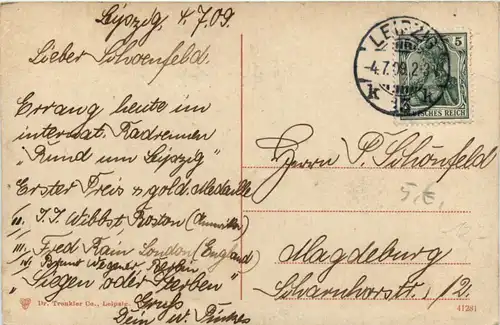 Leipzig, 4.7.09.
Lieber Schoenfeld.
Errang heute im
internat. Radrennen
"Rund um Leipzig"
Erster Preis u gold. Medaille
II. J.J. Wibbst, Boston
III. Fred Rain London (England)
IV. Bruno Wegener
"Siegen oder Sterben"
Gruß
Dein W.
Dr. Trenkler Co., Leipzig.
LEIPZIG
-4.7.09.2-
13
k k
5
DEUTSCHES REICH
Herrn F. Schönfeld
5,-
Magdeburg
Scharnhorststr. 12
41281